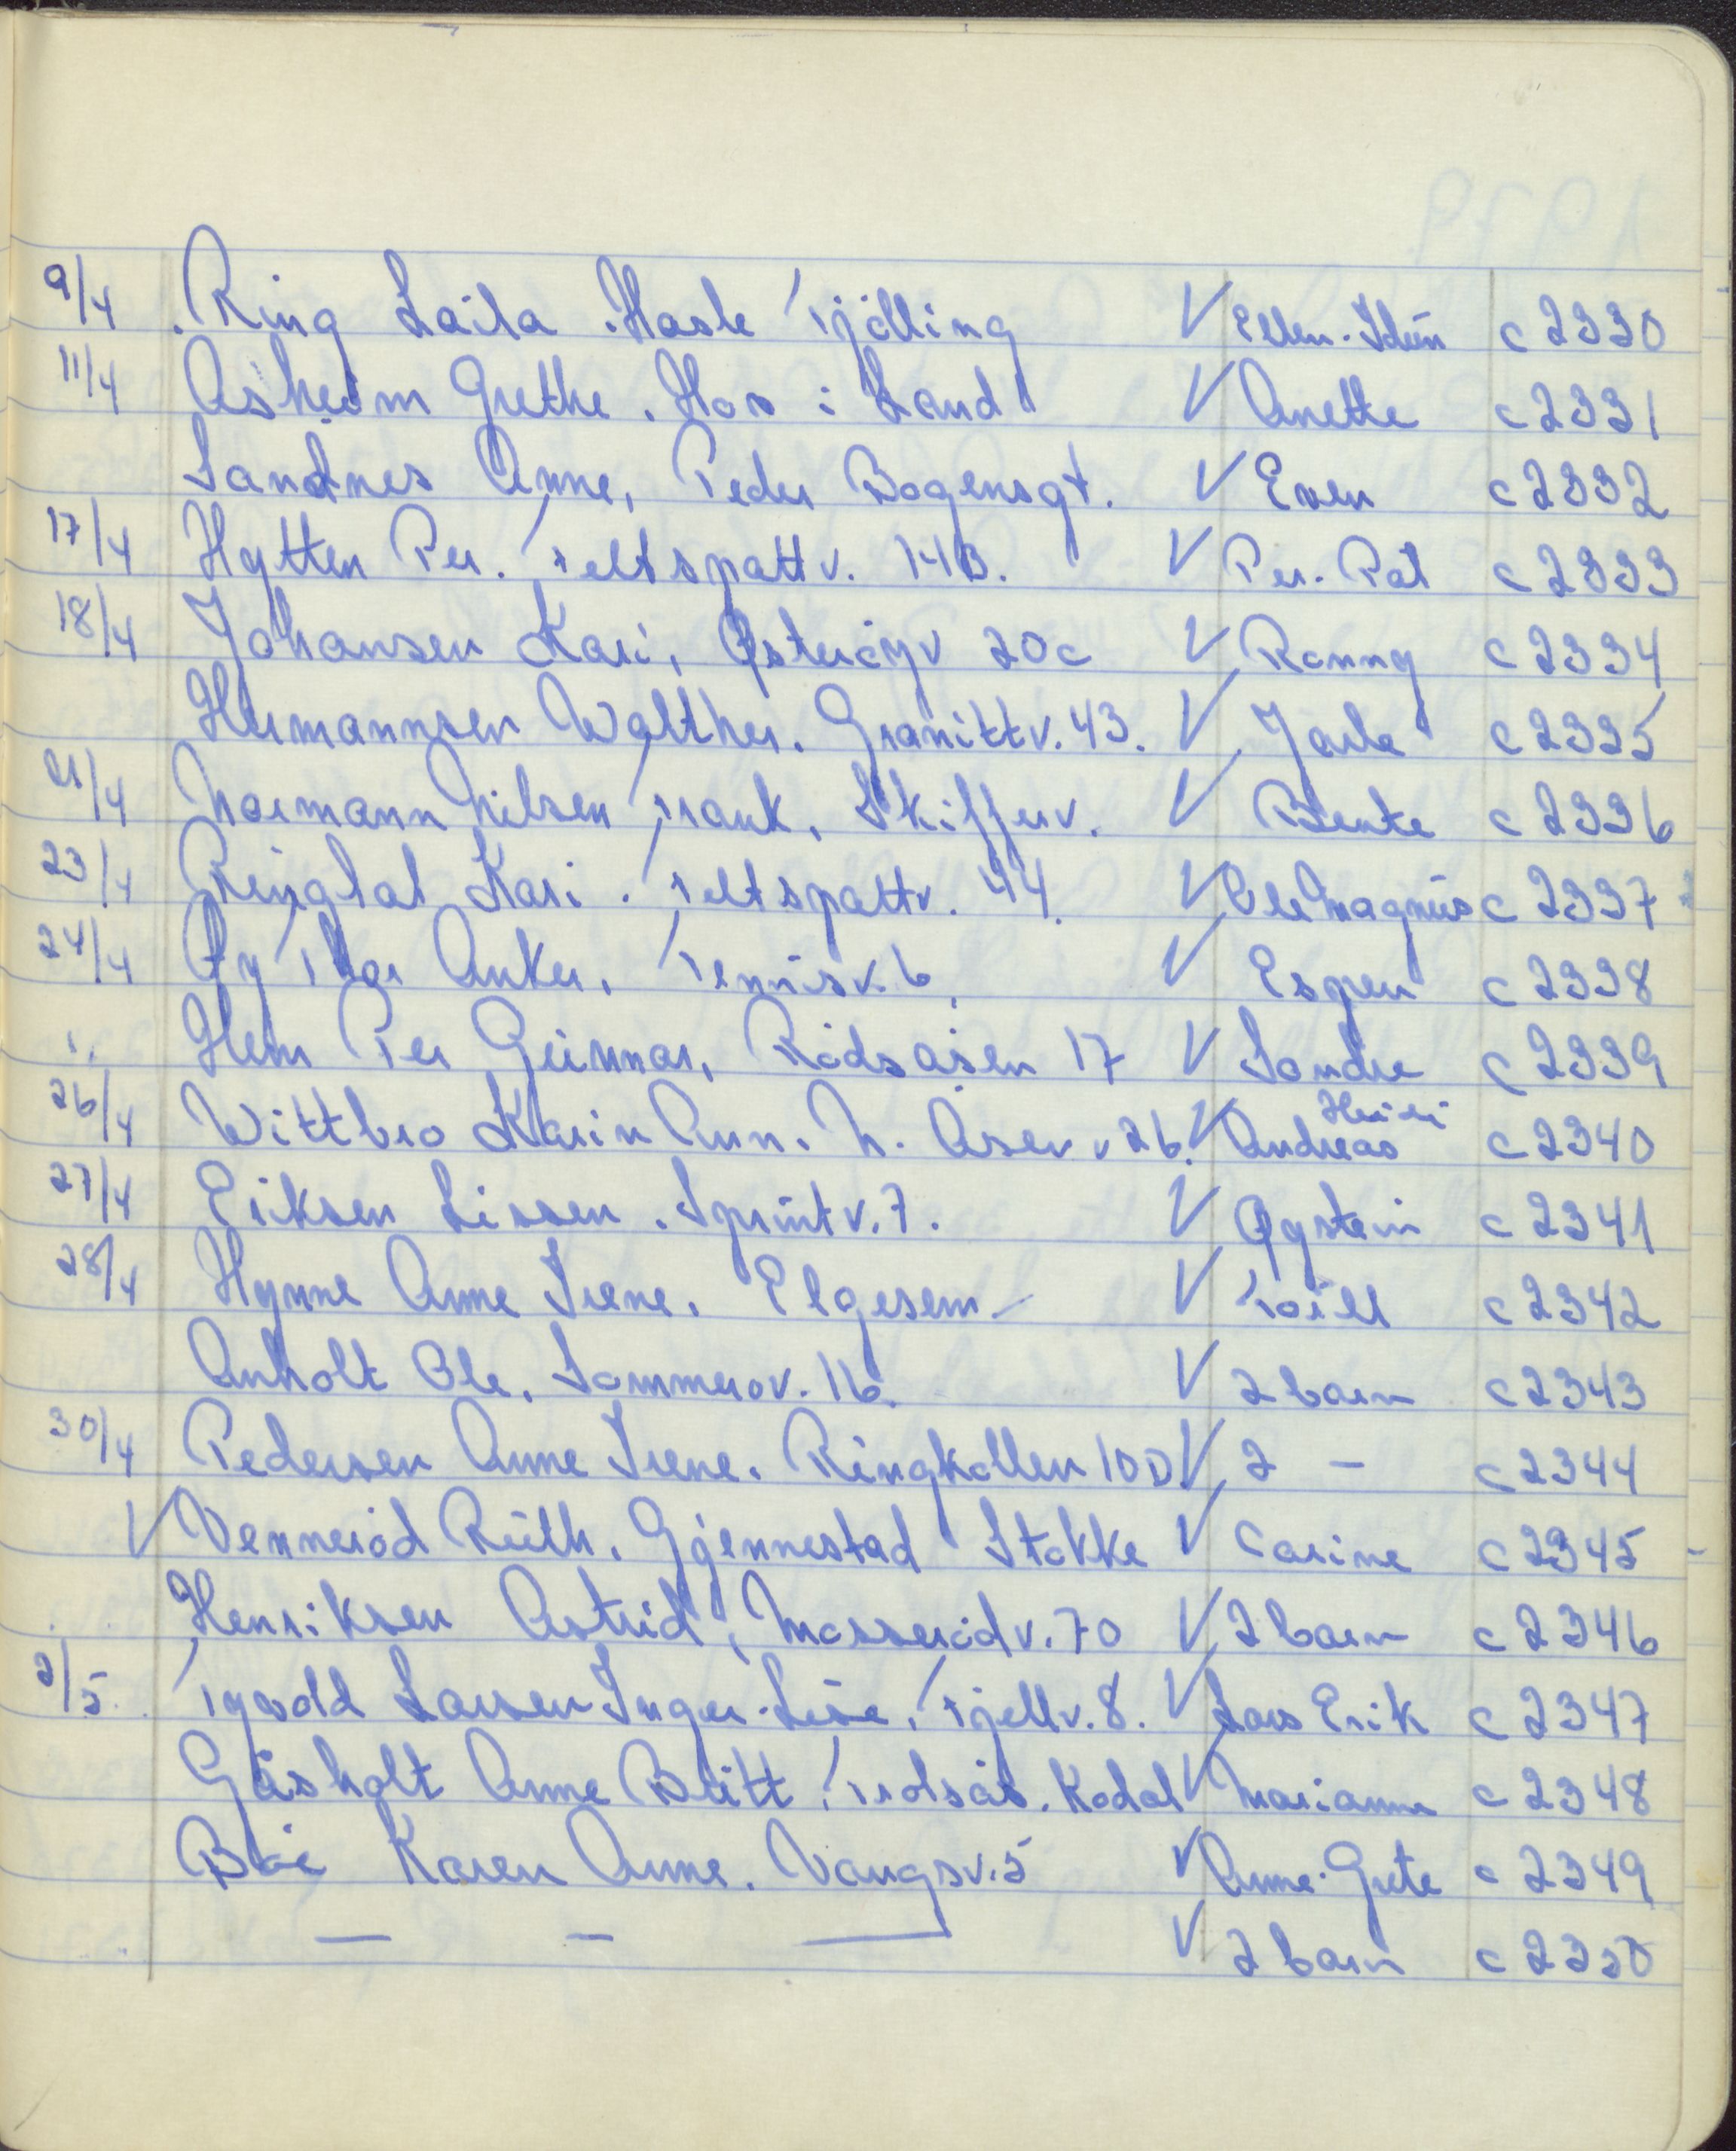 9/4 Ring Laila. Hasle Tjölling V Ellen. Idun c 2330
11/4 Åsheim Grethe. Hos: Land V Anette c 2331
Sandnes Anne, Peder Bogensgt. V Even c 2332
17/4 Hytten Per. Feltspattv. 14B. V Per. Pål c 2333
18/4 Johansen Kari, Østerøyv 20c V Ronny c 2334
Hermannsen Walther. Granittv. 43. V Jarle c 2335
21/4 Normann Nilsen Frank, Skifferv. V Bente c 2336
23/4 Ringdal Kari. Feltspattv. 44. V Ole Magnus c 2337
24/4 Anker, Tennisv. 6, V Espen c 2338
" Hem Per Gunnar, Rödsåsen 17 V Sondre c 2339
Heidi
26/4 Wittbro Karin Ann. N. Åsen v 26. V Andreas c 2340
27/4 Eriksen Lissen. Sprintv. 7. V Øystein c 2341
28/4 Hynne Anne Irene. Elgesem V Toill c 2342
Anholt Ole. Sommerov. 16. V 2 barn c 2343
30/4 Pedersen Anne Irene. Ringkollen 10 D V 2 – c 2344
V Venneröd Ruth. Gjennestad Stokke V Carine c 2345
Henriksen Astrid, Mosserödv. 70 V 2 barn c 2346
2/5. Larsen Inger-Lise, Fjellv. 8. V Lars Erik c 2347
Gåsholt Anne Britt, Trolsås. Kodal V Marianne c 2348
Böe Karen Anne. Vangsv. 5 V Anne-Grete c 2349
— – — V 2 barn c 2350